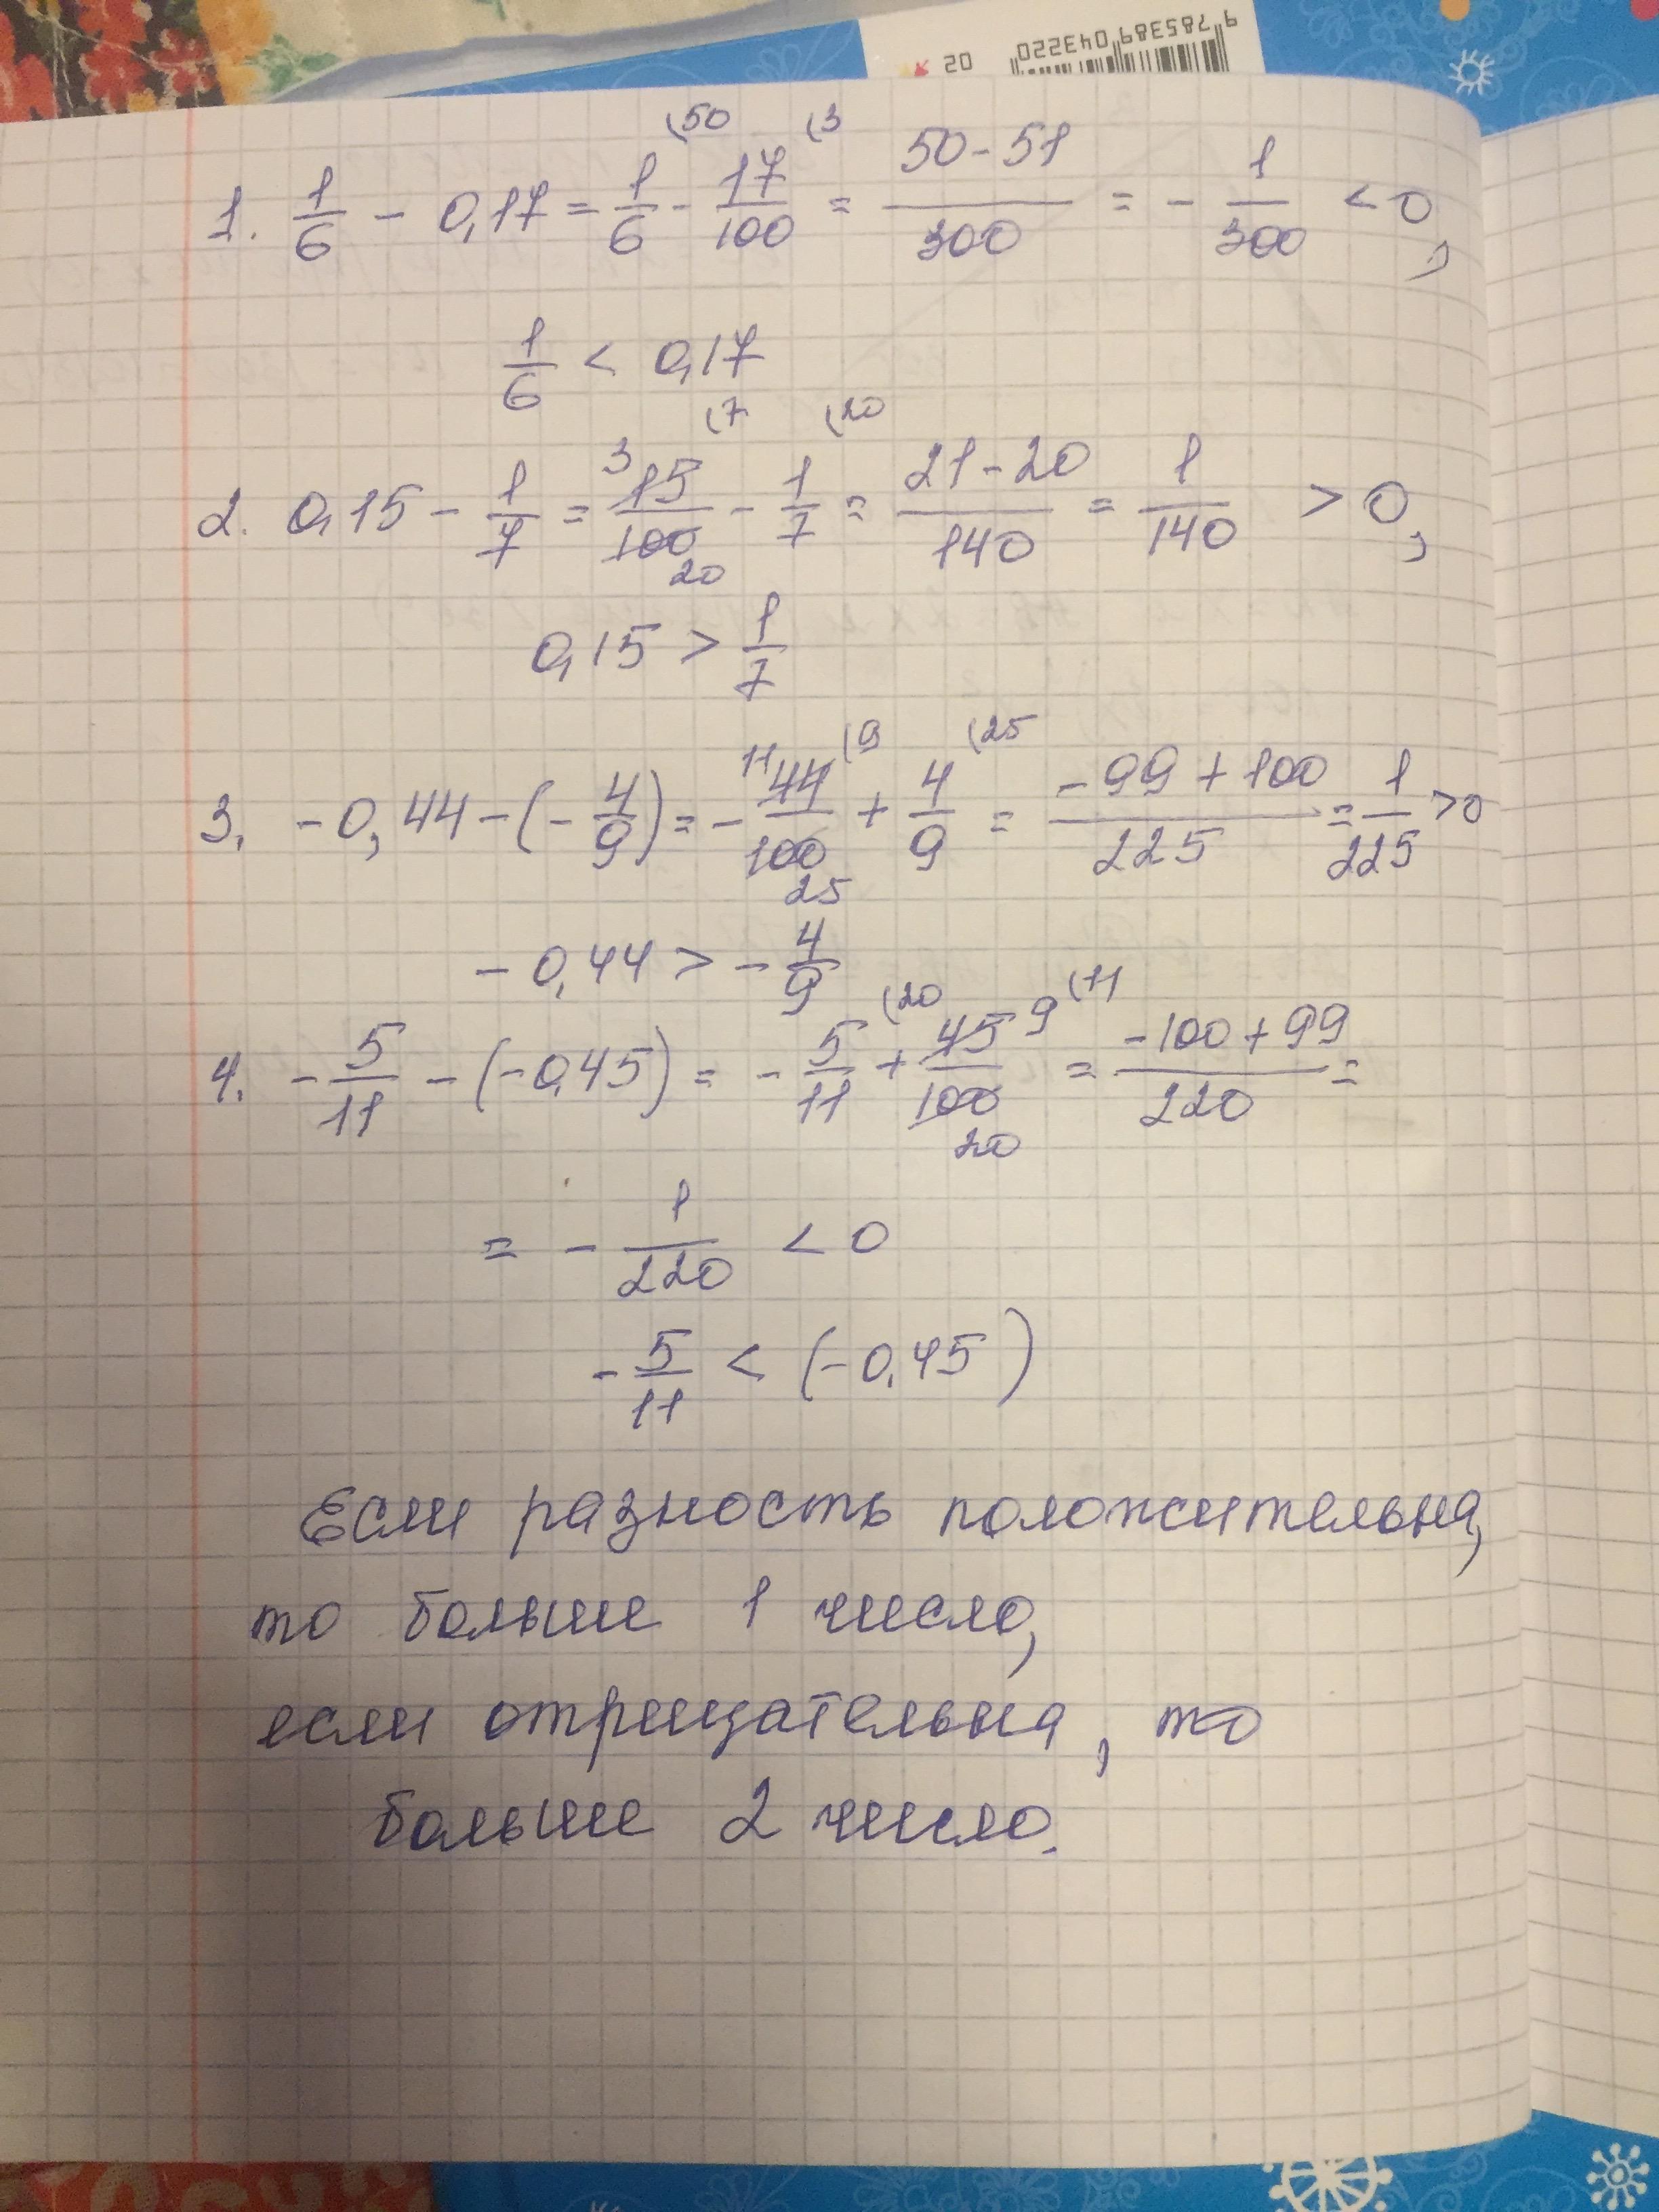 9785389043220 02
(50 (3
1. 1/6 - 0,17 = 1/6 - 17/100 = 50-51/300 = - 1/300 < 0,
1/6 < 0,17
(7 (20
2. 0,15 - 1/7 = 3 15/100 20 - 1/7 = 21-20/140 = 1/140 > 0,
0,15 > 1/7
(9 (25
3. -0,44 - (- 4/9) = - 11 44/100 25 + 4/9 = -99+100/225 = 1/225 >0
-0,44 > - 4/9
(20 9 (11
4. - 5/11 - (-0,45) = - 5/11 + 45/100 20 = -100+99/220 =
= - 1/220 < 0
- 5/11 < (-0,45)
Если разность положительна,
то больше 1 число,
если отрицательна, то
больше 2 число.